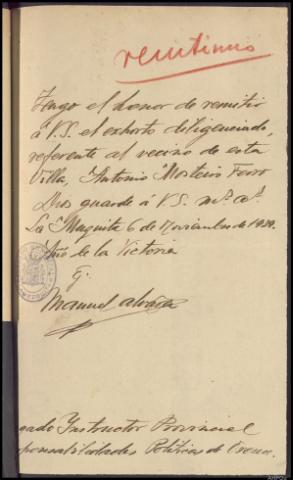 remitimos
Tengo el honor de remitir
á V.S. el exhorto diligenciado,
referente al vecino de esta
Villa, Antonio Mosteiro Ferro
Dios guarde á V.S. ms. as.
La Mezquita 6 de Noviembre de 1939.
Año de la Victoria
Manuel
gado Instructor Provincial
sponsabilidades Politicas de Orense.